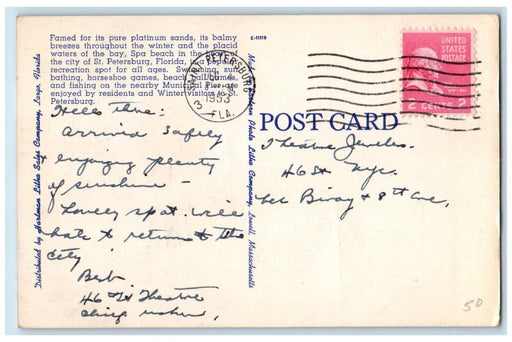 Famed for its pure platinum sands, its balmy
breezes throughout the winter and the placid
waters of the bay, Spa beach in the heart of
the city of St. Petersburg, Florida, is a popular
recreation spot for all ages. Swimming, sun
bathing, horseshoe games, beach ball games,
and fishing on the nearby Municipal Pier are
enjoyed by residents and Winter visitors to St.
Petersburg.
SAINT PETERSBURG
PM
1953
FLA.
UNITED
STATES
POSTAGE
2 CENTS 2
POST CARD
Distributed by Hartman Litho Sales Company, Largo, Florida
Lowell, Massachusetts
Hello there:
Arrived safely
& enjoying plenty
of sunshine -
Lovely spot. will
hate to return to the
City
Bert
46 St Theatre
chief usher.
Theatre Jewelers.
46 St Nyc.
bet Bway & 8th Ave.
50